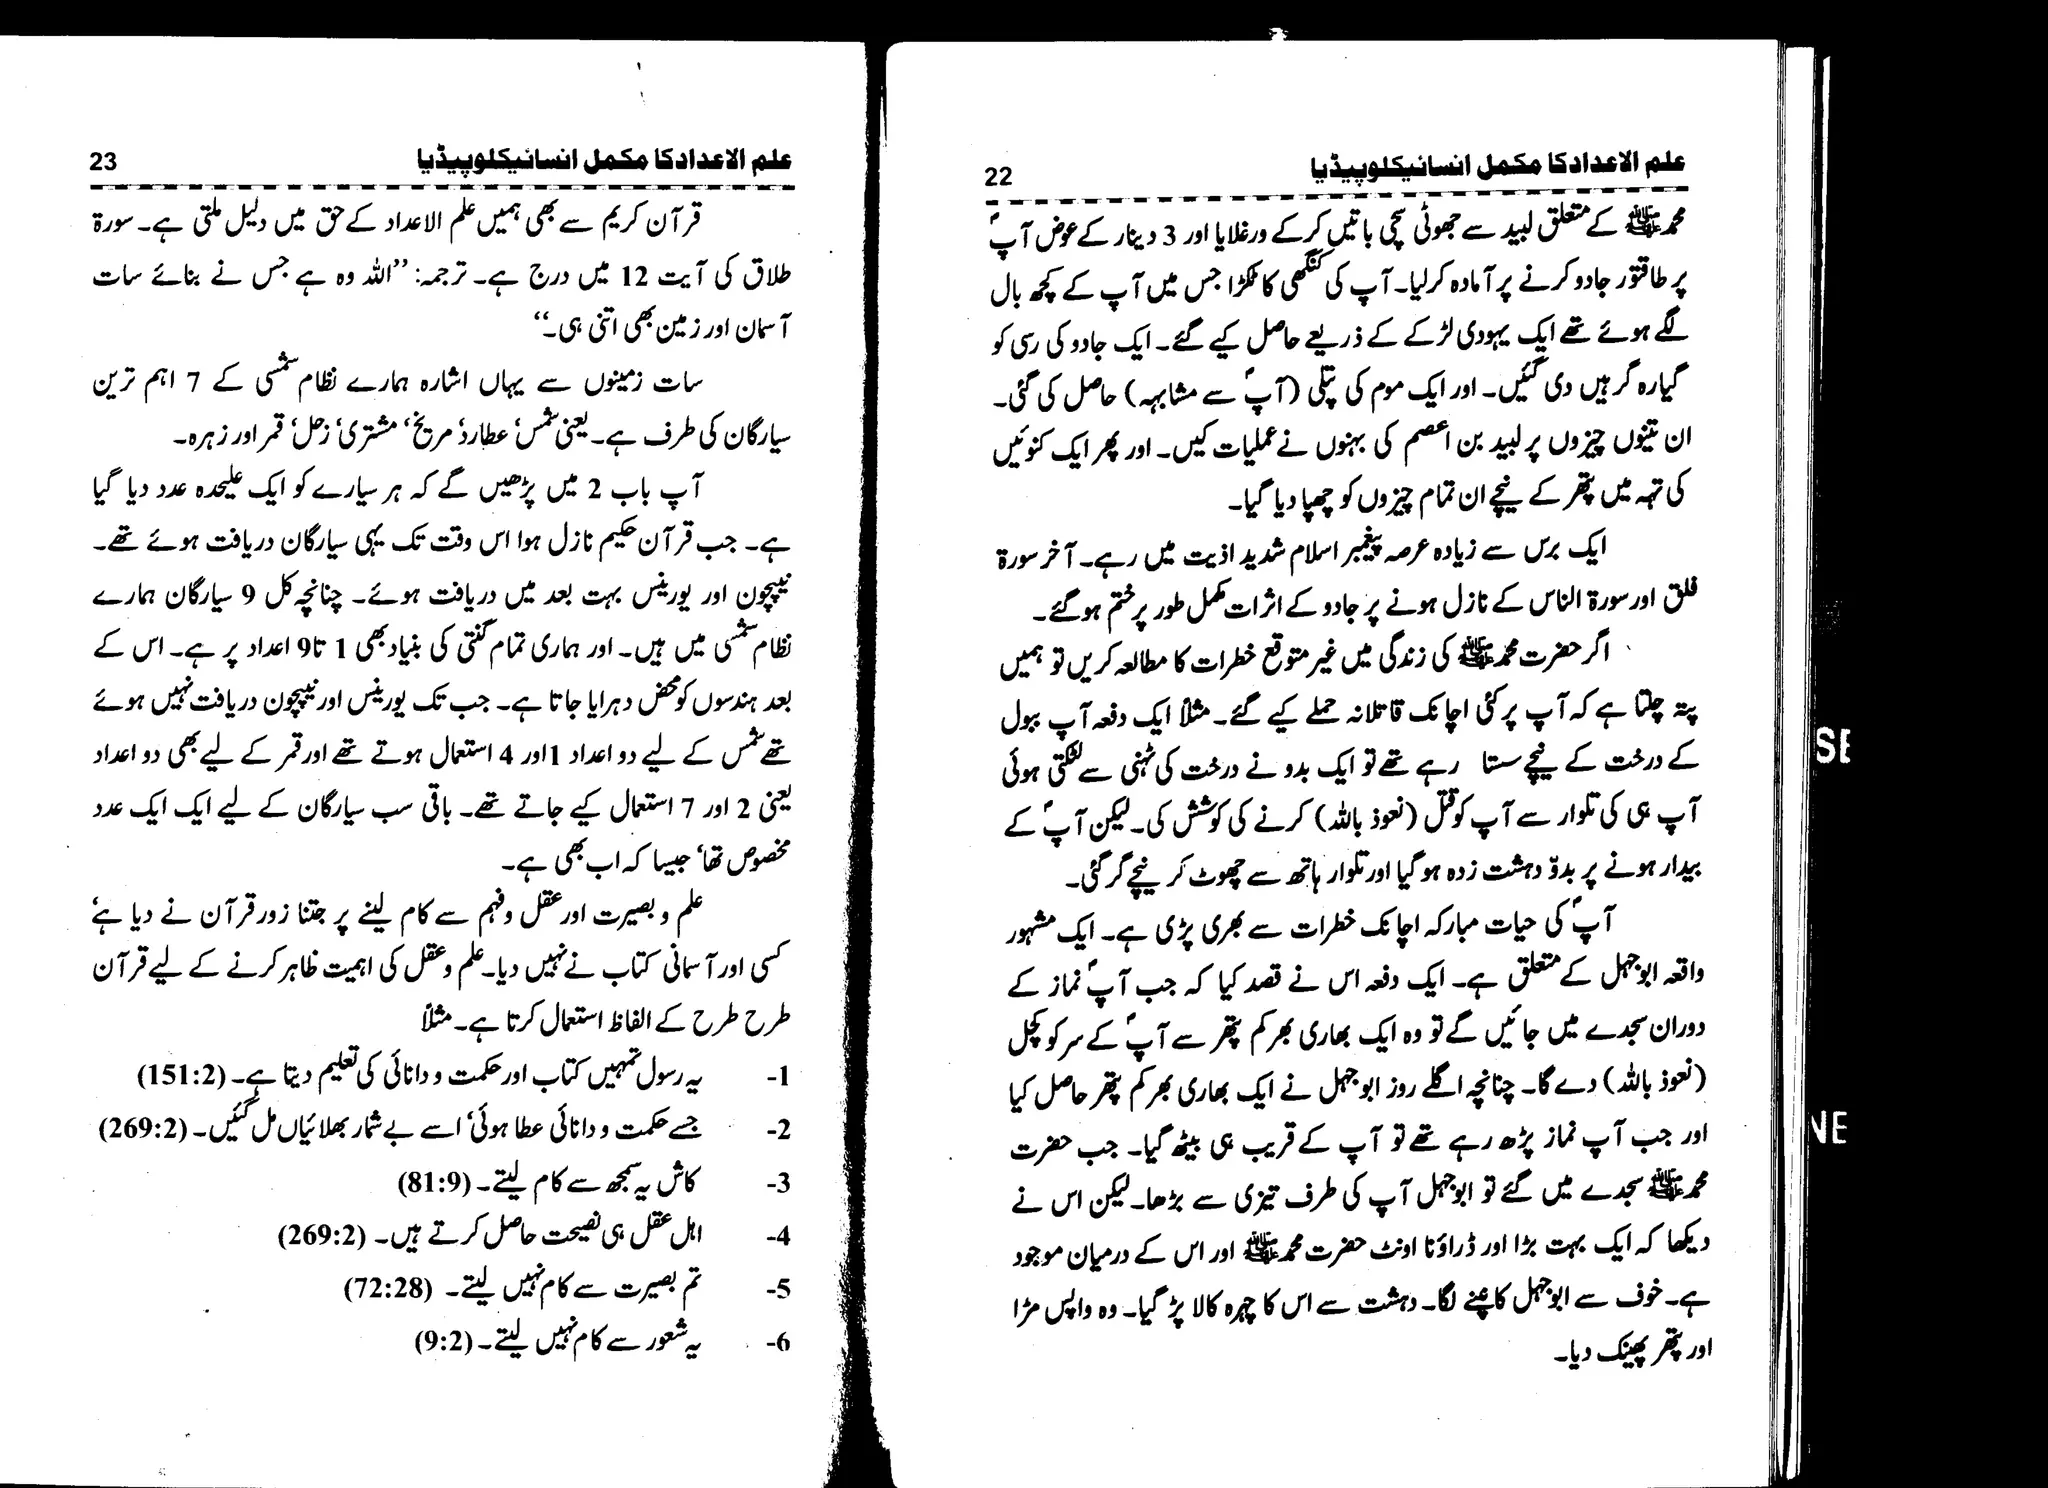 علم الاعداد کا مکمل انسائیکلوپیڈیا 22
محمد ﷺ کے متعلق لبید سے جھوٹی سچی باتیں کر کے ورغلایا اور 3 دینار کے عوض آپؐ
پر طاقتور جادو کرنے پر آمادہ کر لیا۔ آپ کی کنگھی کا ٹکڑا جس میں آپ کے کچھ بال
لگے ہوئے تھے ایک یہودی لڑکے کے ذریعے حاصل کیے گئے۔ ایک جادو کی رسی کو
گیارہ گرہیں دی گئیں۔ اور ایک موم کی پتلی (آپؐ سے مشابہہ) حاصل کی گئی۔
ان تینوں چیزوں پر لبید بن اعصم کی بہنوں نے عملیات کیں۔ اور پھر ایک کنوئیں
کی تہہ میں پتھر کے نیچے ان تمام چیزوں کو چھپا دیا گیا۔
ایک برس سے زیادہ عرصہ پیغمبر اسلام شدید اذیت میں رہے۔ آخر سورۃ
فلق اور سورۃ الناس کے نازل ہونے پر جادو کے اثرات مکمل طور پر ختم ہو گئے۔
اگر حضرت محمد ﷺ کی زندگی میں غیر متوقع خطرات کا مطالعہ کریں تو ہمیں
پتہ چلتا ہے کہ آپ پر کئی اچانک قاتلانہ حملے کیے گئے۔ مثلاً ایک دفعہ آپ ببول
کے درخت کے نیچے سستا رہے تھے تو ایک بدو نے درخت کی ٹہنی سے لٹکتی ہوئی
آپ ہی کی تلوار سے آپ کو قتل (نعوذ باللہ) کرنے کی کوشش کی۔ لیکن آپؐ کے
بیدار ہونے پر بدوّ دہشت زدہ ہو گیا اور تلوار ہاتھ سے چھوٹ کر نیچے گر گئی۔
آپؐ کی حیات مبارکہ اچانک خطرات سے بھری پڑی ہے۔ ایک مشہور
واقعہ ابوجہل کے متعلق ہے۔ ایک دفعہ اس نے قصد کیا کہ جب آپؐ نماز کے
دوران سجدے میں جائیں گے تو وہ ایک بھاری بھرکم پتھر سے آپؐ کے سر کو کچل
(نعوذ باللہ) دے گا۔ چنانچہ اگلے روز ابوجہل نے ایک بھاری بھرکم پتھر حاصل کیا
اور جب آپ نماز پڑھ رہے تھے تو آپ کے قریب ہی بیٹھ گیا۔ جب حضرت
محمد ﷺ سجدے میں گئے تو ابوجہل آپ کی طرف تیزی سے بڑھا۔ لیکن اس نے
دیکھا کہ ایک بہت بڑا اور ڈراؤنا اونٹ حضرت محمد ﷺ اور اس کے درمیان موجود
ہے۔ خوف سے ابوجہل کانپنے لگا۔ دہشت سے اس کا چہرہ کالا پڑ گیا۔ وہ واپس مڑا
اور پتھر پھینک دیا۔
علم الاعداد کا مکمل انسائیکلوپیڈیا 23
قرآن کریم سے بھی ہمیں علم الاعداد کے حق میں دلیل ملتی ہے۔ سورۃ
طلاق کی آیت 12 میں درج ہے۔ ترجمہ: ”اللہ وہ ہے جس نے بنائے سات
آسمان اور زمین بھی اتنی ہی۔“
سات زمینوں سے یہاں اشارہ ہمارے نظام شمسی کے 7 اہم ترین
سیارگان کی طرف ہے۔ یعنی شمس، عطارد، مریخ، مشتری، زحل، قمر اور زہرہ۔
آپ باب 2 میں پڑھیں گے کہ ہر سیارے کو ایک علیحدہ عدد دیا گیا
ہے۔ جب قرآن حکیم نازل ہوا اس وقت تک یہی سیارگان دریافت ہوئے تھے۔
نیپچون اور یورینس بہت بعد میں دریافت ہوئے۔ چنانچہ کل 9 سیارگان ہمارے
نظام شمسی میں ہیں۔ اور ہماری تمام گنتی کی بنیاد بھی 1 تا 9 اعداد پر ہے۔ اس کے
بعد ہندسوں کو محض دہرایا جاتا ہے۔ جب تک یورینس اور نیپچون دریافت نہیں ہوئے
تھے شمس کے لیے دو اعداد 1 اور 4 استعمال ہوتے تھے اور قمر کے لیے بھی دو اعداد
یعنی 2 اور 7 استعمال کیے جاتے تھے۔ باقی سب سیارگان کے لیے ایک ایک عدد
مخصوص تھا، جیسا کہ اب بھی ہے۔
علم و بصیرت اور عقل و فہم سے کام لینے پر جتنا زور قرآن نے دیا ہے،
کسی اور آسمانی کتاب نے نہیں دیا۔ علم و عقل کی اہمیت ظاہر کرنے کے لیے قرآن
طرح طرح کے الفاظ استعمال کرتا ہے۔ مثلاً
1- یہ رسول تمہیں کتاب اور حکمت و دانائی کی تعلیم دیتا ہے۔ (151:2)
2- جسے حکمت و دانائی عطا ہوئی، اسے بے شمار بھلائیاں مل گئیں۔ (269:2)
3- کاش یہ سمجھ سے کام لیتے۔ (81:9)
4- اہل عقل ہی نصیحت حاصل کرتے ہیں۔ (269:2)
5- تم بصیرت سے کام نہیں لیتے۔ (72:28)
6- یہ شعور سے کام نہیں لیتے۔ (9:2)